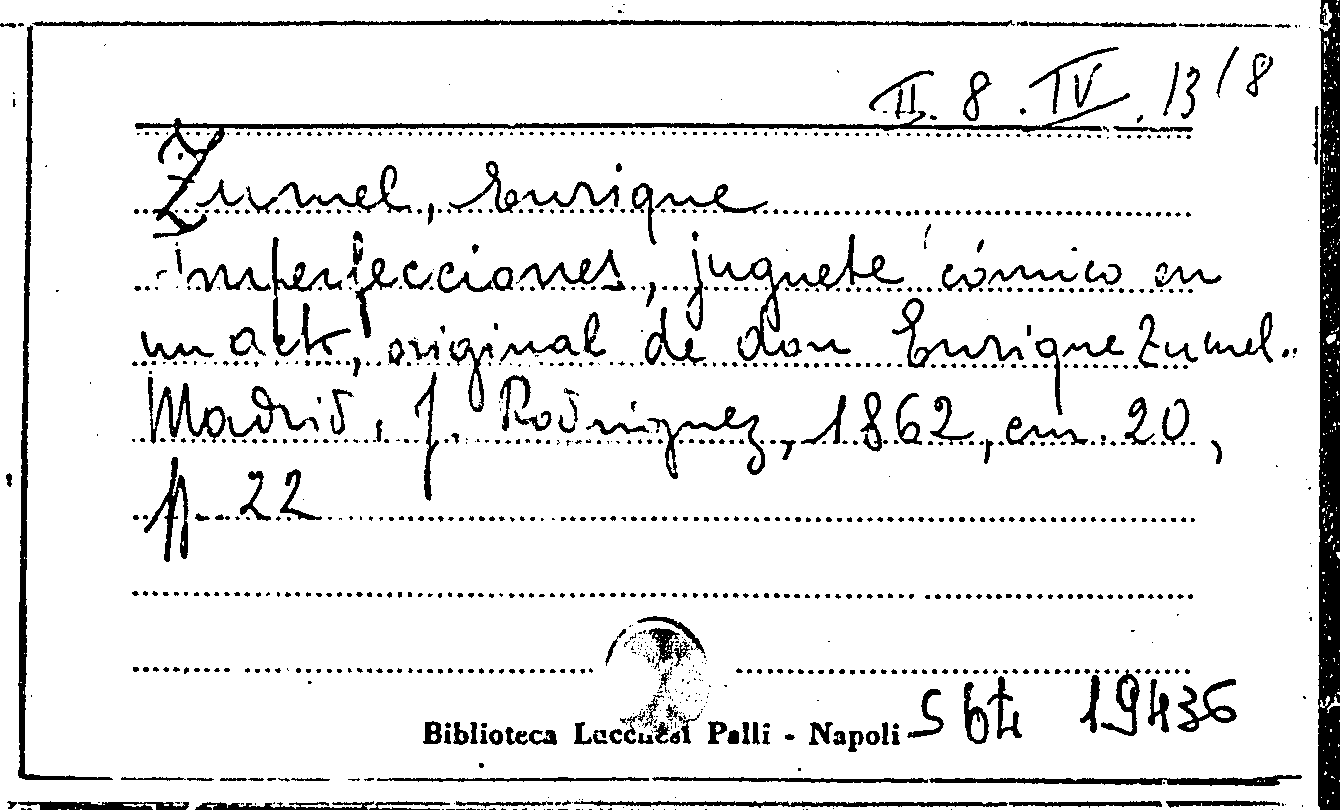 II. 8. IV. 13/8
Zumel, Enrique
Imperfecciones, juguete cómico en
un acto, original de don Enrique Zumel..
Madrid, J. Rodriguez, 1862, cm. 20,
p. 22
Biblioteca Lucchesi Palli - Napoli
19436